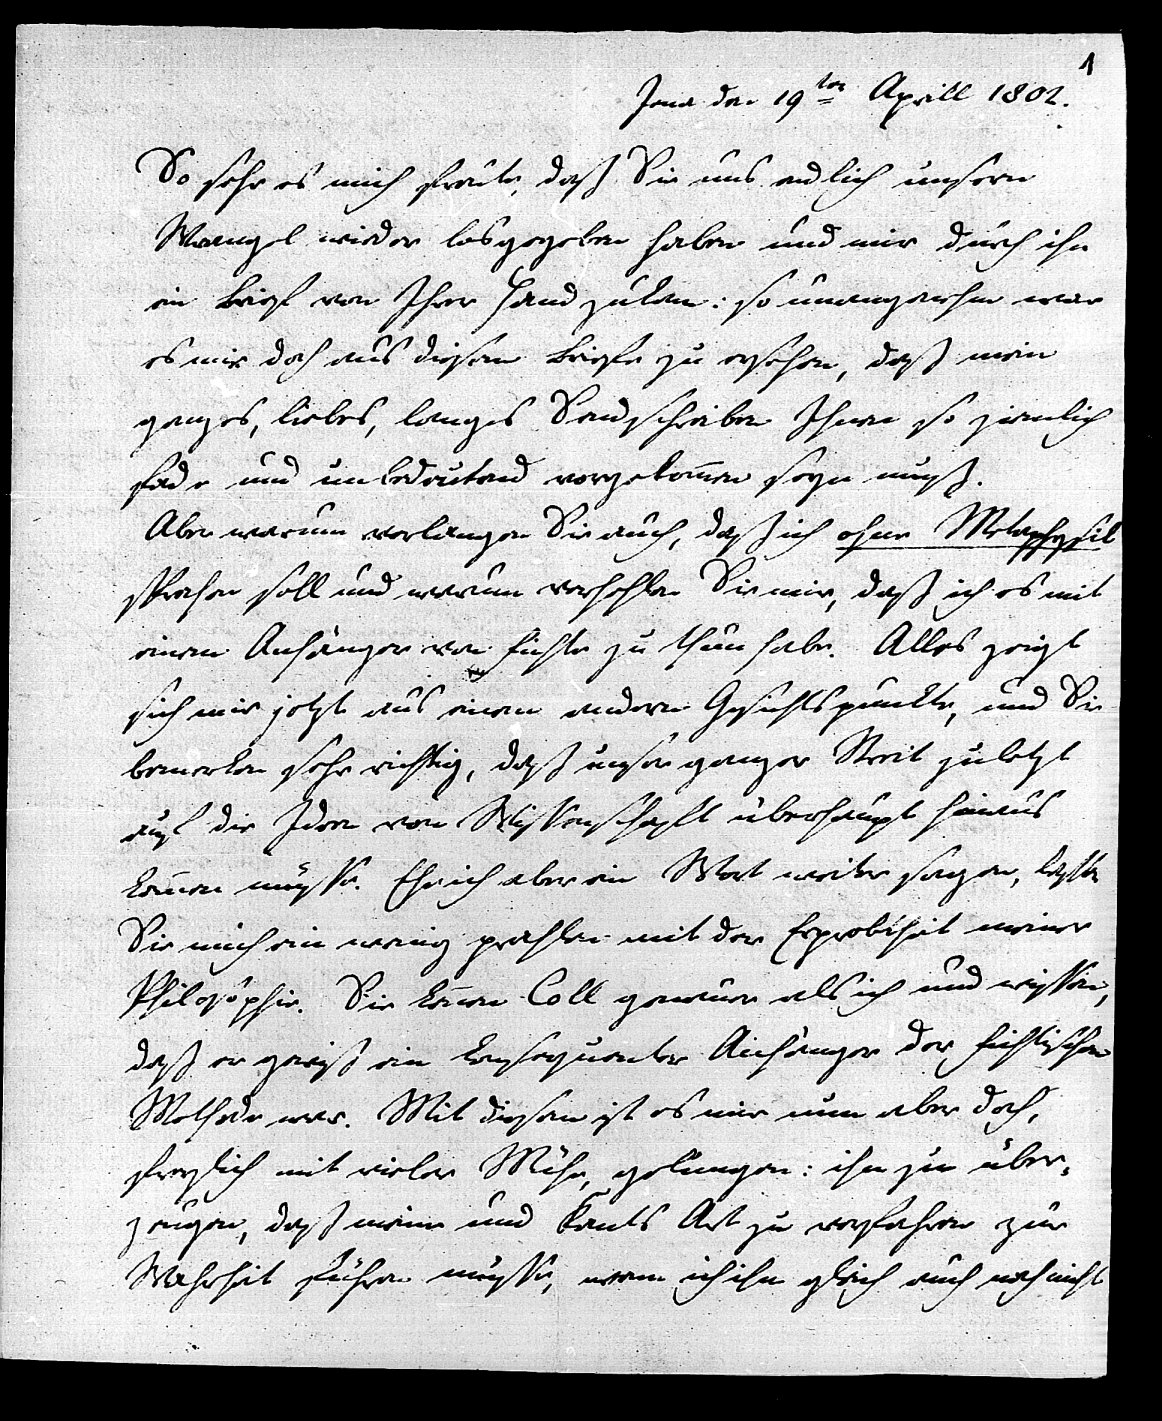 1
Jena den 19ten Aprill 1802.
So sehr es mich freute, daß Sie uns endlich unsern
Wrangel wieder losgegeben haben und mir durch ihn
ein Brief von Ihrer Hand zukam: so unangenehm war
es mir doch aus diesem Briefe zu ersehen, daß mein
ganzes, liebes, langes Sendschreiben Ihnen so ziemlich
fade und unbedeutend vorgekom̅en seyn muß.
Aber warum verlangen Sie auch, daß ich ohne Metaphysik
sprechen soll und warum verhehlen Sie mir, daß ich es mit
einem Anhänger von Fichte zu thun habe. Alles zeigt
sich mir jetzt aus einem andern Gesichtspunkte, und Sie
bemerken sehr richtig, daß unser ganzer Streit zuletzt
auf die Ideen von Wissenschaft überhaupt hinaus
kom̅en müsse. Eh ich aber ein Wort weiter sage, lassen
Sie mich ein wenig prahlen mit der Erprobtheit meiner
Philosophie. Sie ken̅en Coll genauer als ich und wissen,
daß er gewiß ein konsequenter Anhänger der fichtischen
Methode war. Mit diesem ist es mir nun aber doch,
freylich mit vieler Mühe, gelungen: ihn zu über-
zeugen, daß meine und Kants Art zu verfahren zur
Wahrheit führen müsse, wenn ich ihn gleich auch noch nicht